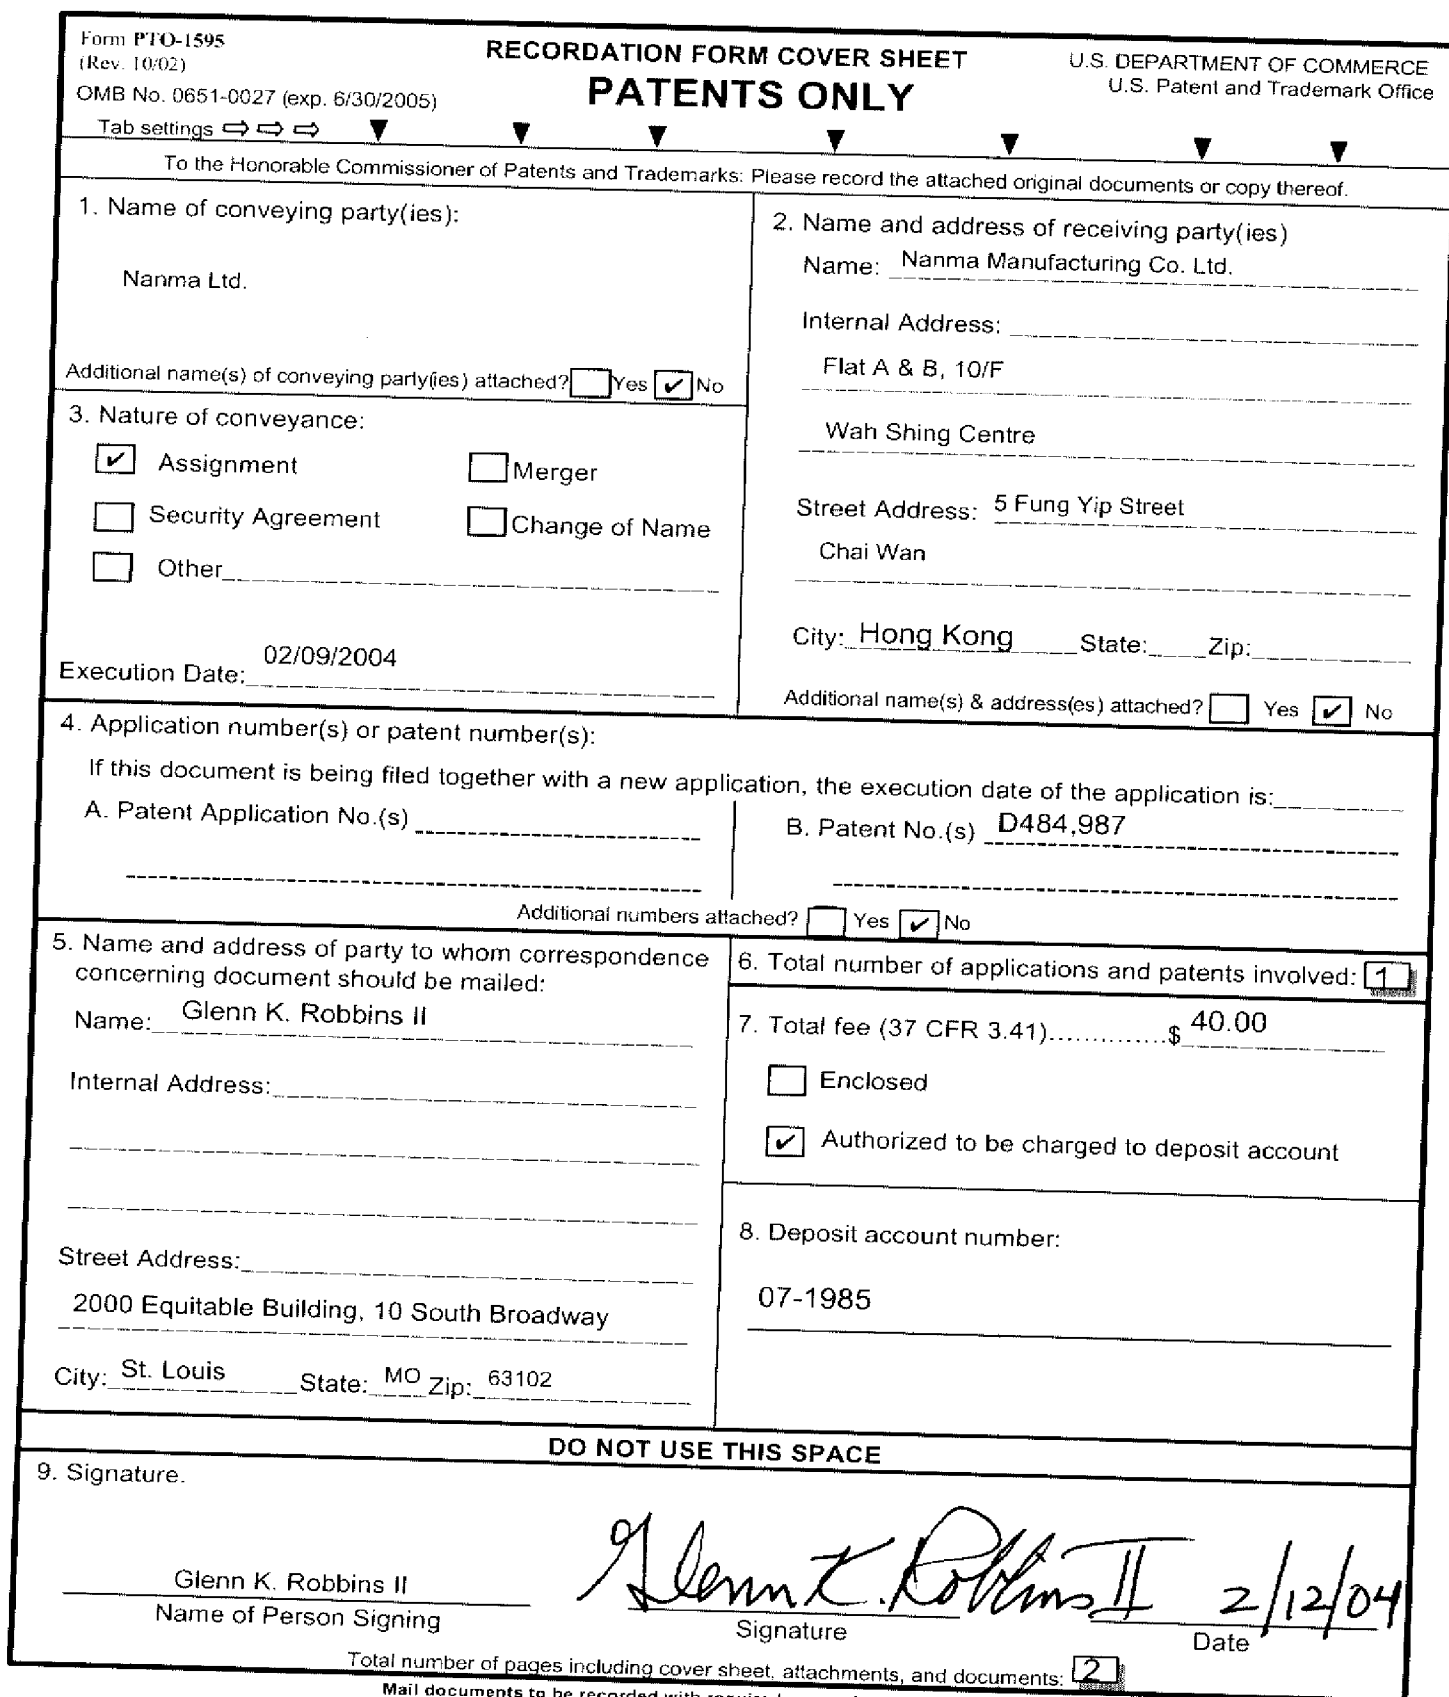 Form PTO-1595
(Rev. 10/02)
OMB No. 0651-0027 (exp. 6/30/2005)
Tab settings ⇨ ⇨ ⇨ ▼ ▼ ▼ ▼ ▼ ▼ ▼
RECORDATION FORM COVER SHEET
PATENTS ONLY
U.S. DEPARTMENT OF COMMERCE
U.S. Patent and Trademark Office
To the Honorable Commissioner of Patents and Trademarks: Please record the attached original documents or copy thereof.
1. Name of conveying party(ies):
Nanma Ltd.
Additional name(s) of conveying party(ies) attached? ☐ Yes ☑ No
2. Name and address of receiving party(ies)
Name: Nanma Manufacturing Co. Ltd.
Internal Address:
Flat A & B, 10/F
Wah Shing Centre
Street Address: 5 Fung Yip Street
Chai Wan
City: Hong Kong State: Zip:
Additional name(s) & address(es) attached? ☐ Yes ☑ No
3. Nature of conveyance:
☑ Assignment ☐ Merger
☐ Security Agreement ☐ Change of Name
☐ Other
Execution Date: 02/09/2004
4. Application number(s) or patent number(s):
If this document is being filed together with a new application, the execution date of the application is:
A. Patent Application No.(s)
B. Patent No.(s) D484,987
Additional numbers attached? ☐ Yes ☑ No
5. Name and address of party to whom correspondence
concerning document should be mailed:
Name: Glenn K. Robbins II
Internal Address:
Street Address:
2000 Equitable Building, 10 South Broadway
City: St. Louis State: MO Zip: 63102
6. Total number of applications and patents involved: 1
7. Total fee (37 CFR 3.41)..............$ 40.00
☐ Enclosed
☑ Authorized to be charged to deposit account
8. Deposit account number:
07-1985
DO NOT USE THIS SPACE
9. Signature.
Glenn K. Robbins II
Name of Person Signing
Glenn K. Robbins II
Signature
2/12/04
Date
Total number of pages including cover sheet, attachments, and documents: 2
Mail documents to be recorded with